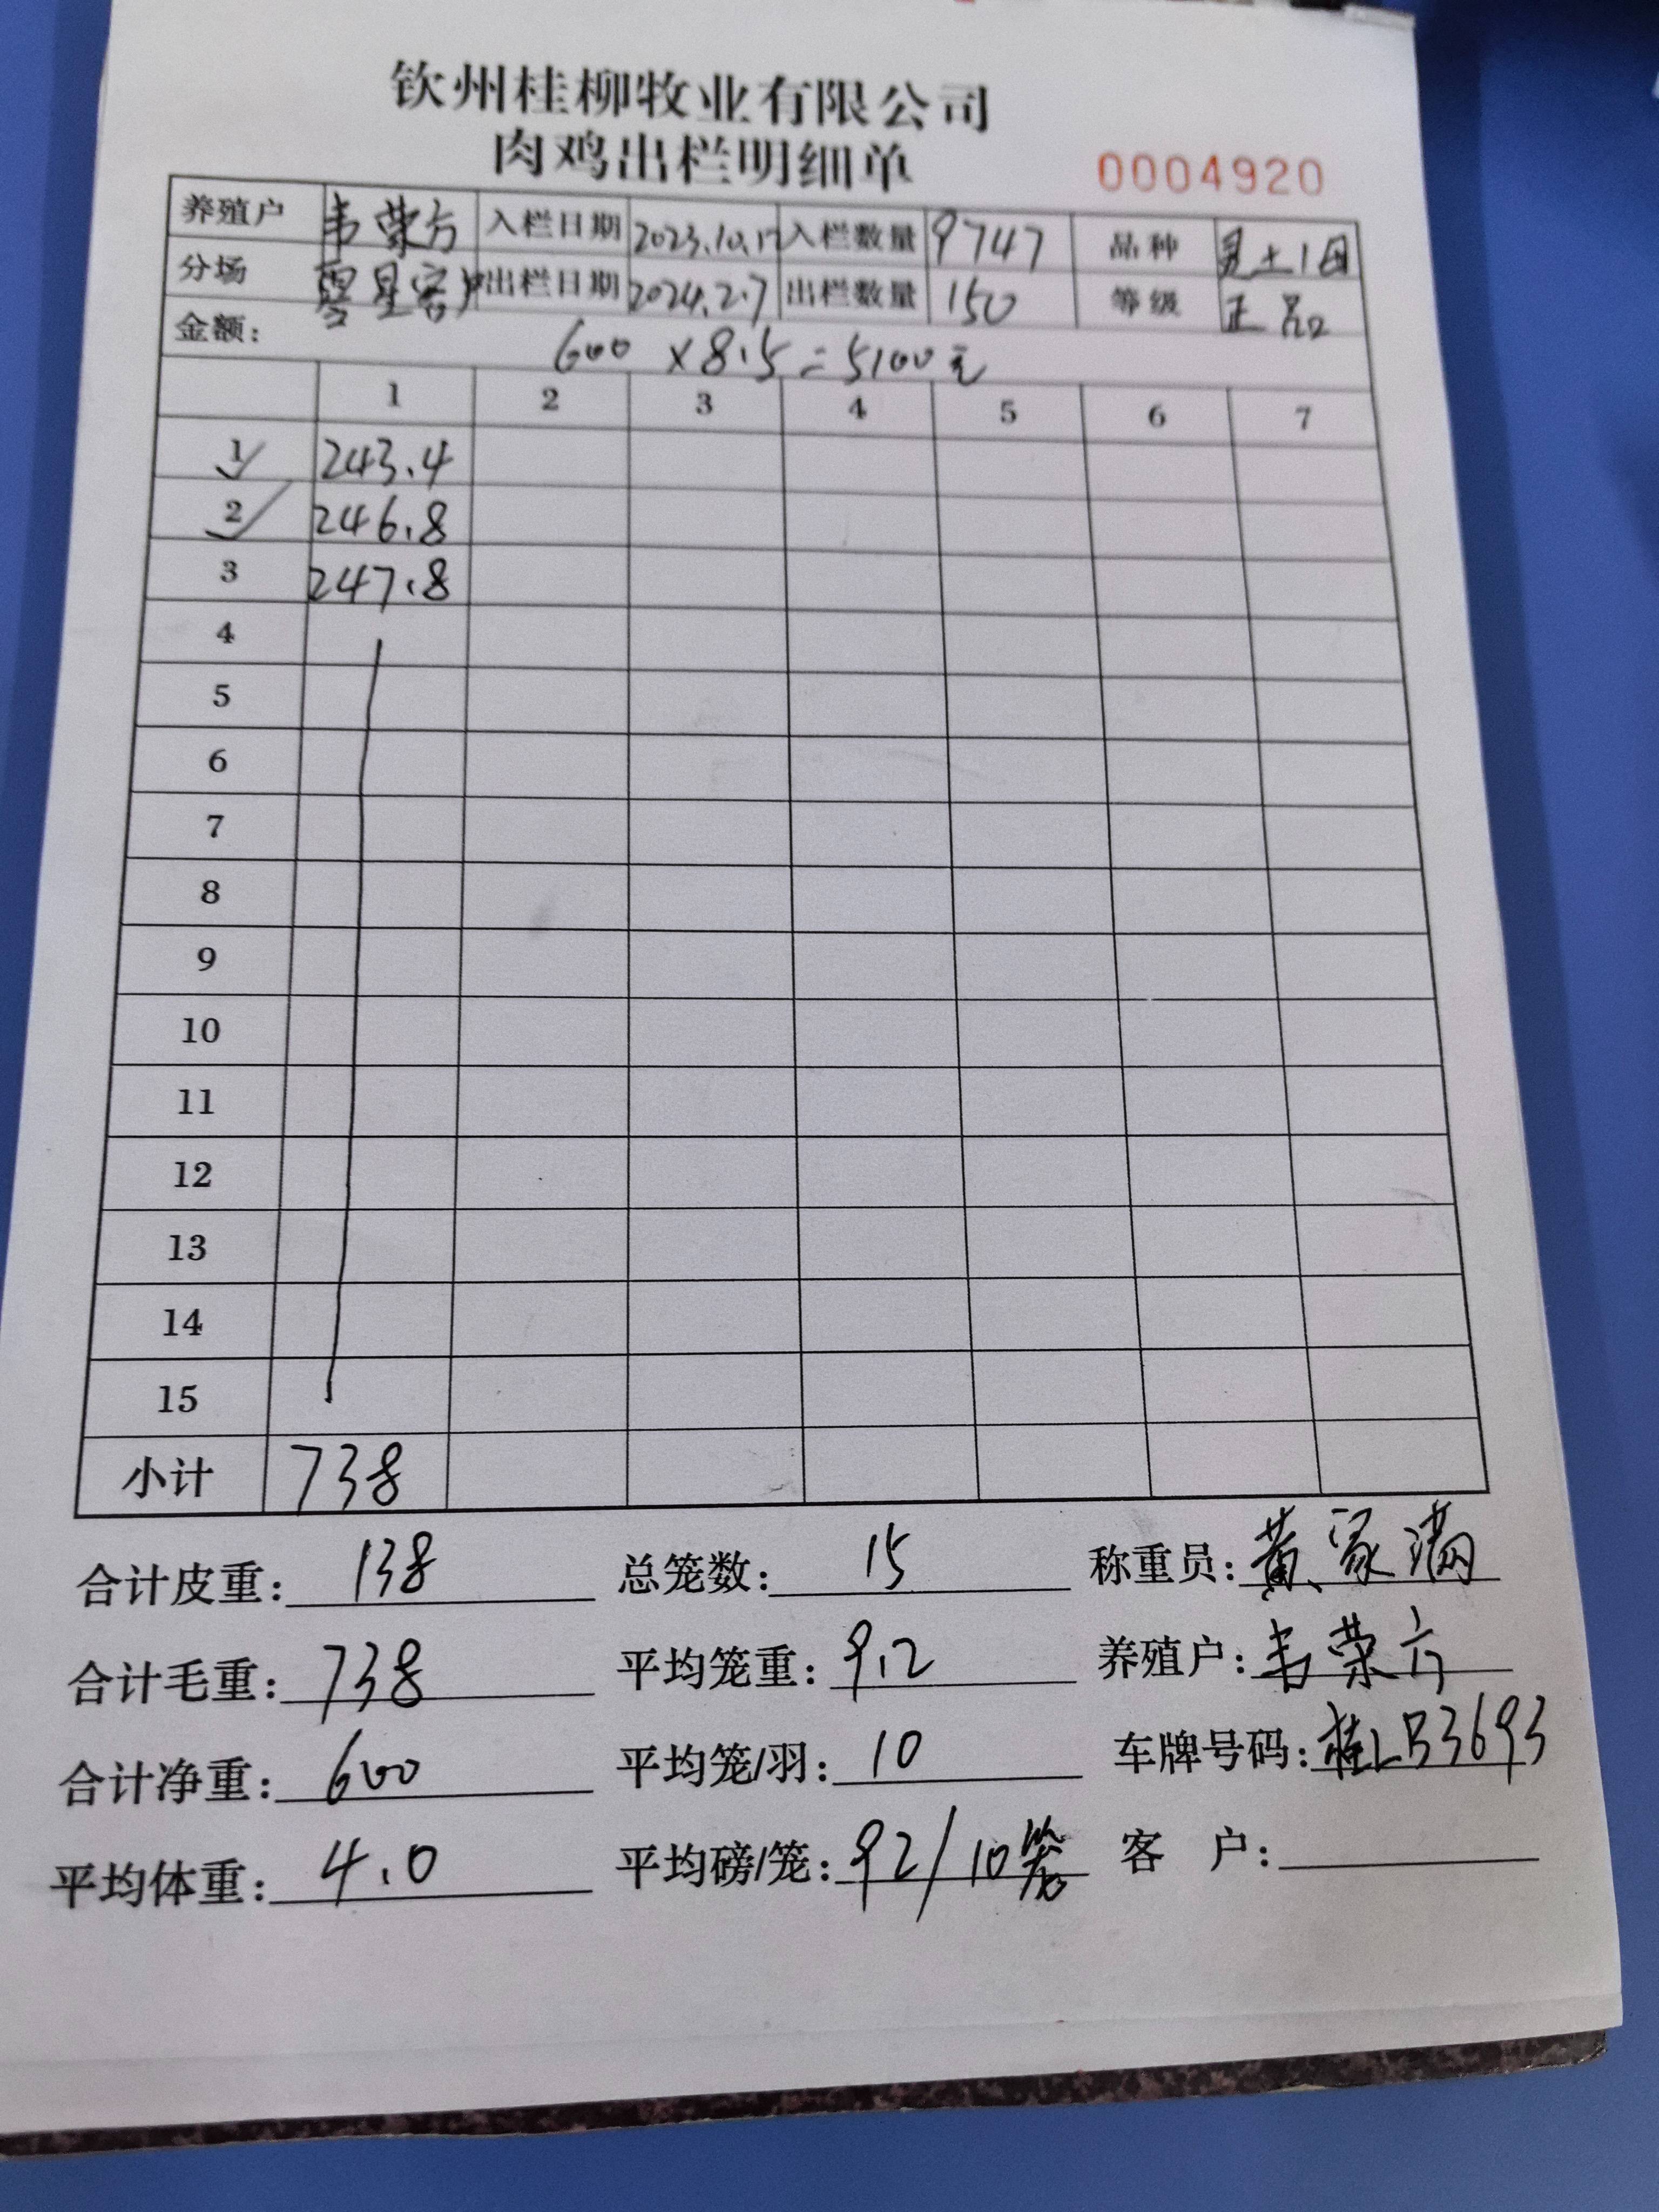 钦州桂柳牧业有限公司
肉鸡出栏明细单 0004920
养殖户 韦荣方 入栏日期 2023.10.17 入栏数量 9747 品种 土1母
分场 零星客户 出栏日期 2024.2.7 出栏数量 150 等级 正品
金额: 600 ×8.5=5100元
1 2 3 4 5 6 7
1 243.4
2 246.8
3 247.8
4
5
6
7
8
9
10
11
12
13
14
15
小计 738
合计皮重: 138 总笼数: 15 称重员: 黄家满
合计毛重: 738 平均笼重: 9.2 养殖户: 韦荣方
合计净重: 600 平均笼/羽: 10 车牌号码: 桂LB3693
平均体重: 4.0 平均磅/笼: 92/10笼 客 户: